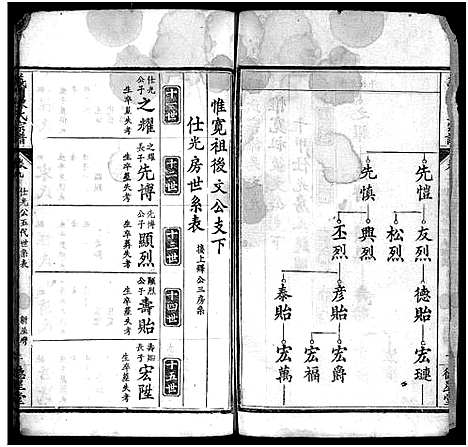 先愷
友烈
德貽
宏璉
松烈
先慎
興烈
丕烈
彥貽
宏爵
宏福
泰貽
宏萬
惟寬祖後文公支下
仕光房世系表
接上鐸公三房系
十一世
仕光公子
之耀
生卒墓失考
十二世
之耀公子
先博
生卒墓失考
十三世
先博公子
顯烈
生卒葬失考
十四世
顯烈公子
壽貽
生卒墓失考
十五世
壽貽長子
宏陞
生卒墓失考
仕光公五代世系表